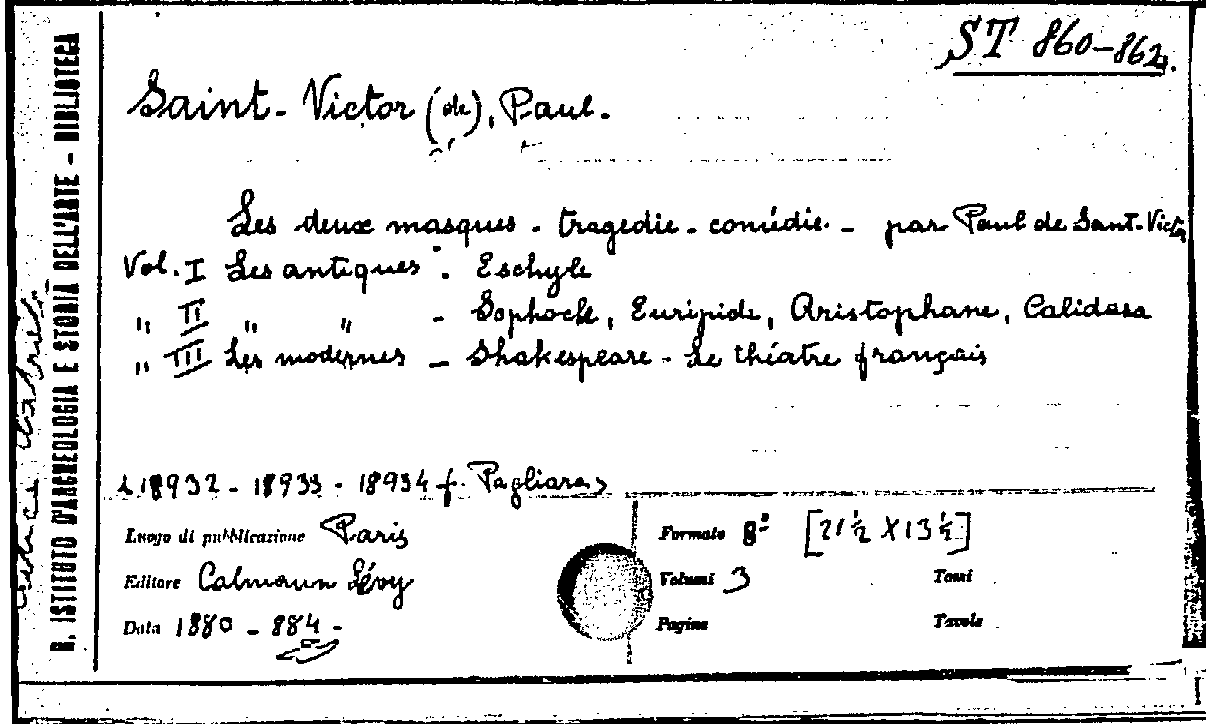 ST 860-862.
Saint-Victor (de), Paul.
Les deux masques - tragedie - comédie - par Paul de Saint-Victor
Vol. I Les antiques - Eschyle
" II " " - Sophocle, Euripide, Aristophane, Calidasa
" III Les modernes - Shakespeare - Le théatre français
i 18932 - 18933 - 18934 f. Pagliara
Luogo di pubblicazione Paris
Formato 8º [21 ½ X 13 ½]
Editore Calmann Lévy
Volumi 3 Tomi
Data 1880 - 884 -
Pagine Tavole
R. ISTITUTO D'ARCHEOLOGIA E STORIA DELL'ARTE - BIBLIOTECA